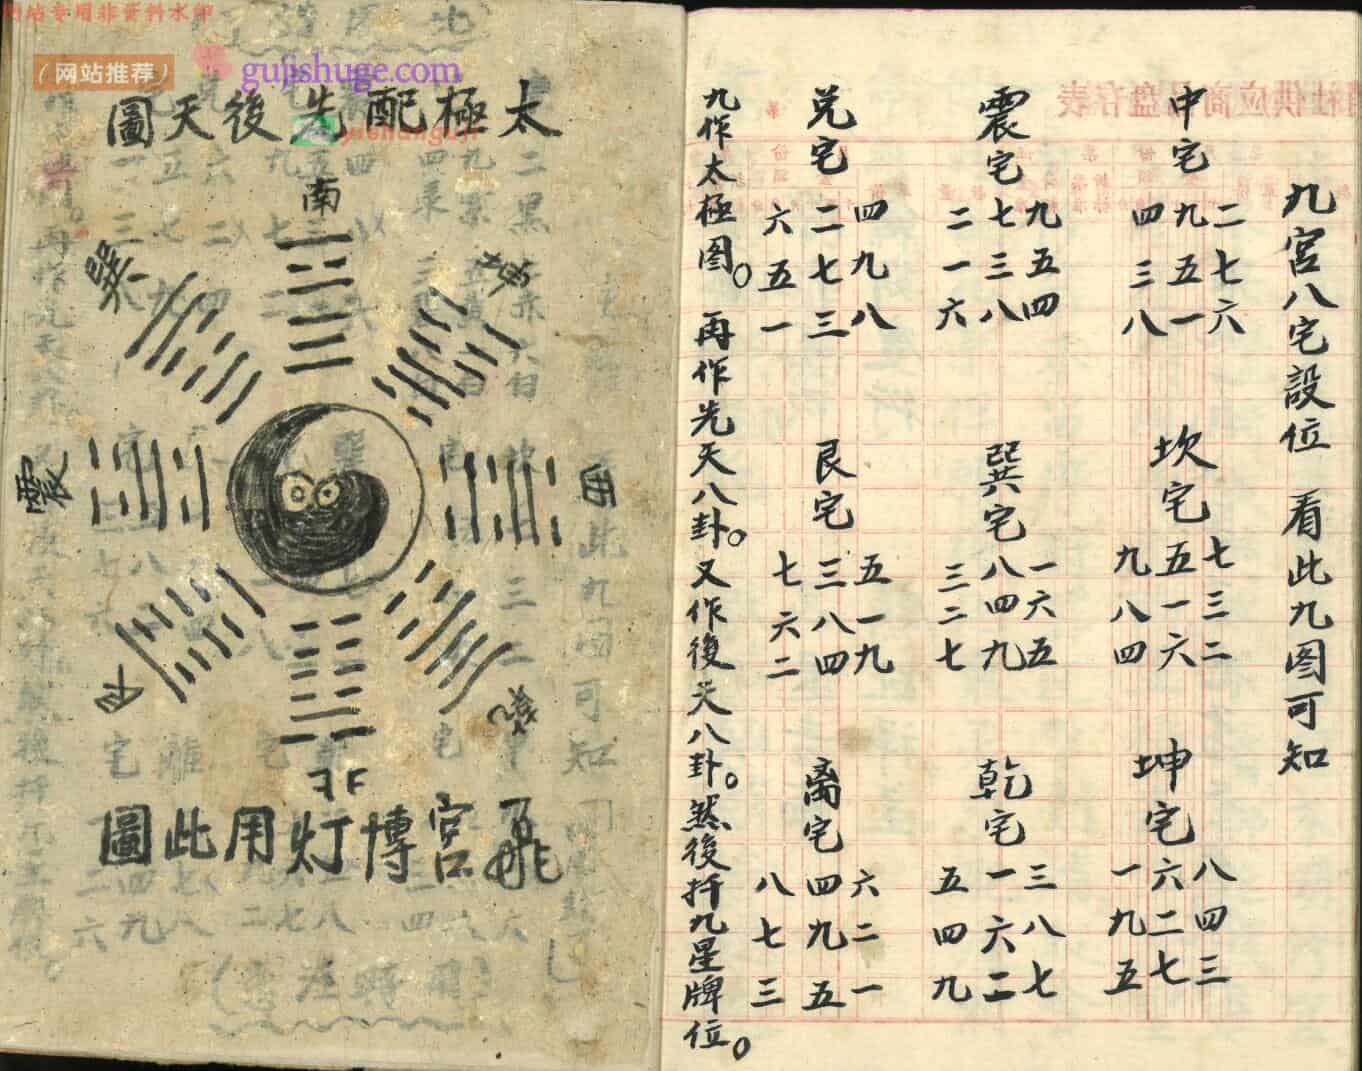 九宮八宅設位 看此九图可知
中宅
二七六
九五一
四三八
坎宅
七三二
五一六
九八四
坤宅
八四三
六二七
一九五
震宅
九五四
七三八
二一六
巽宅
一六五
八四九
三二七
乾宅
三八七
一六二
五四九
兑宅
四九八
二七三
六五一
艮宅
五一九
三八四
七六二
离宅
六二一
四九五
八七三
九作太極图。再作先天八卦。又作後天八卦。然後扦九星牌位。
太極配先後天圖
南
坤
巽
震
西
乾
北
飛宮博灯用此圖
(网站推荐)
gujishuge.com
网站专用非资料水印
供应商
盘存表